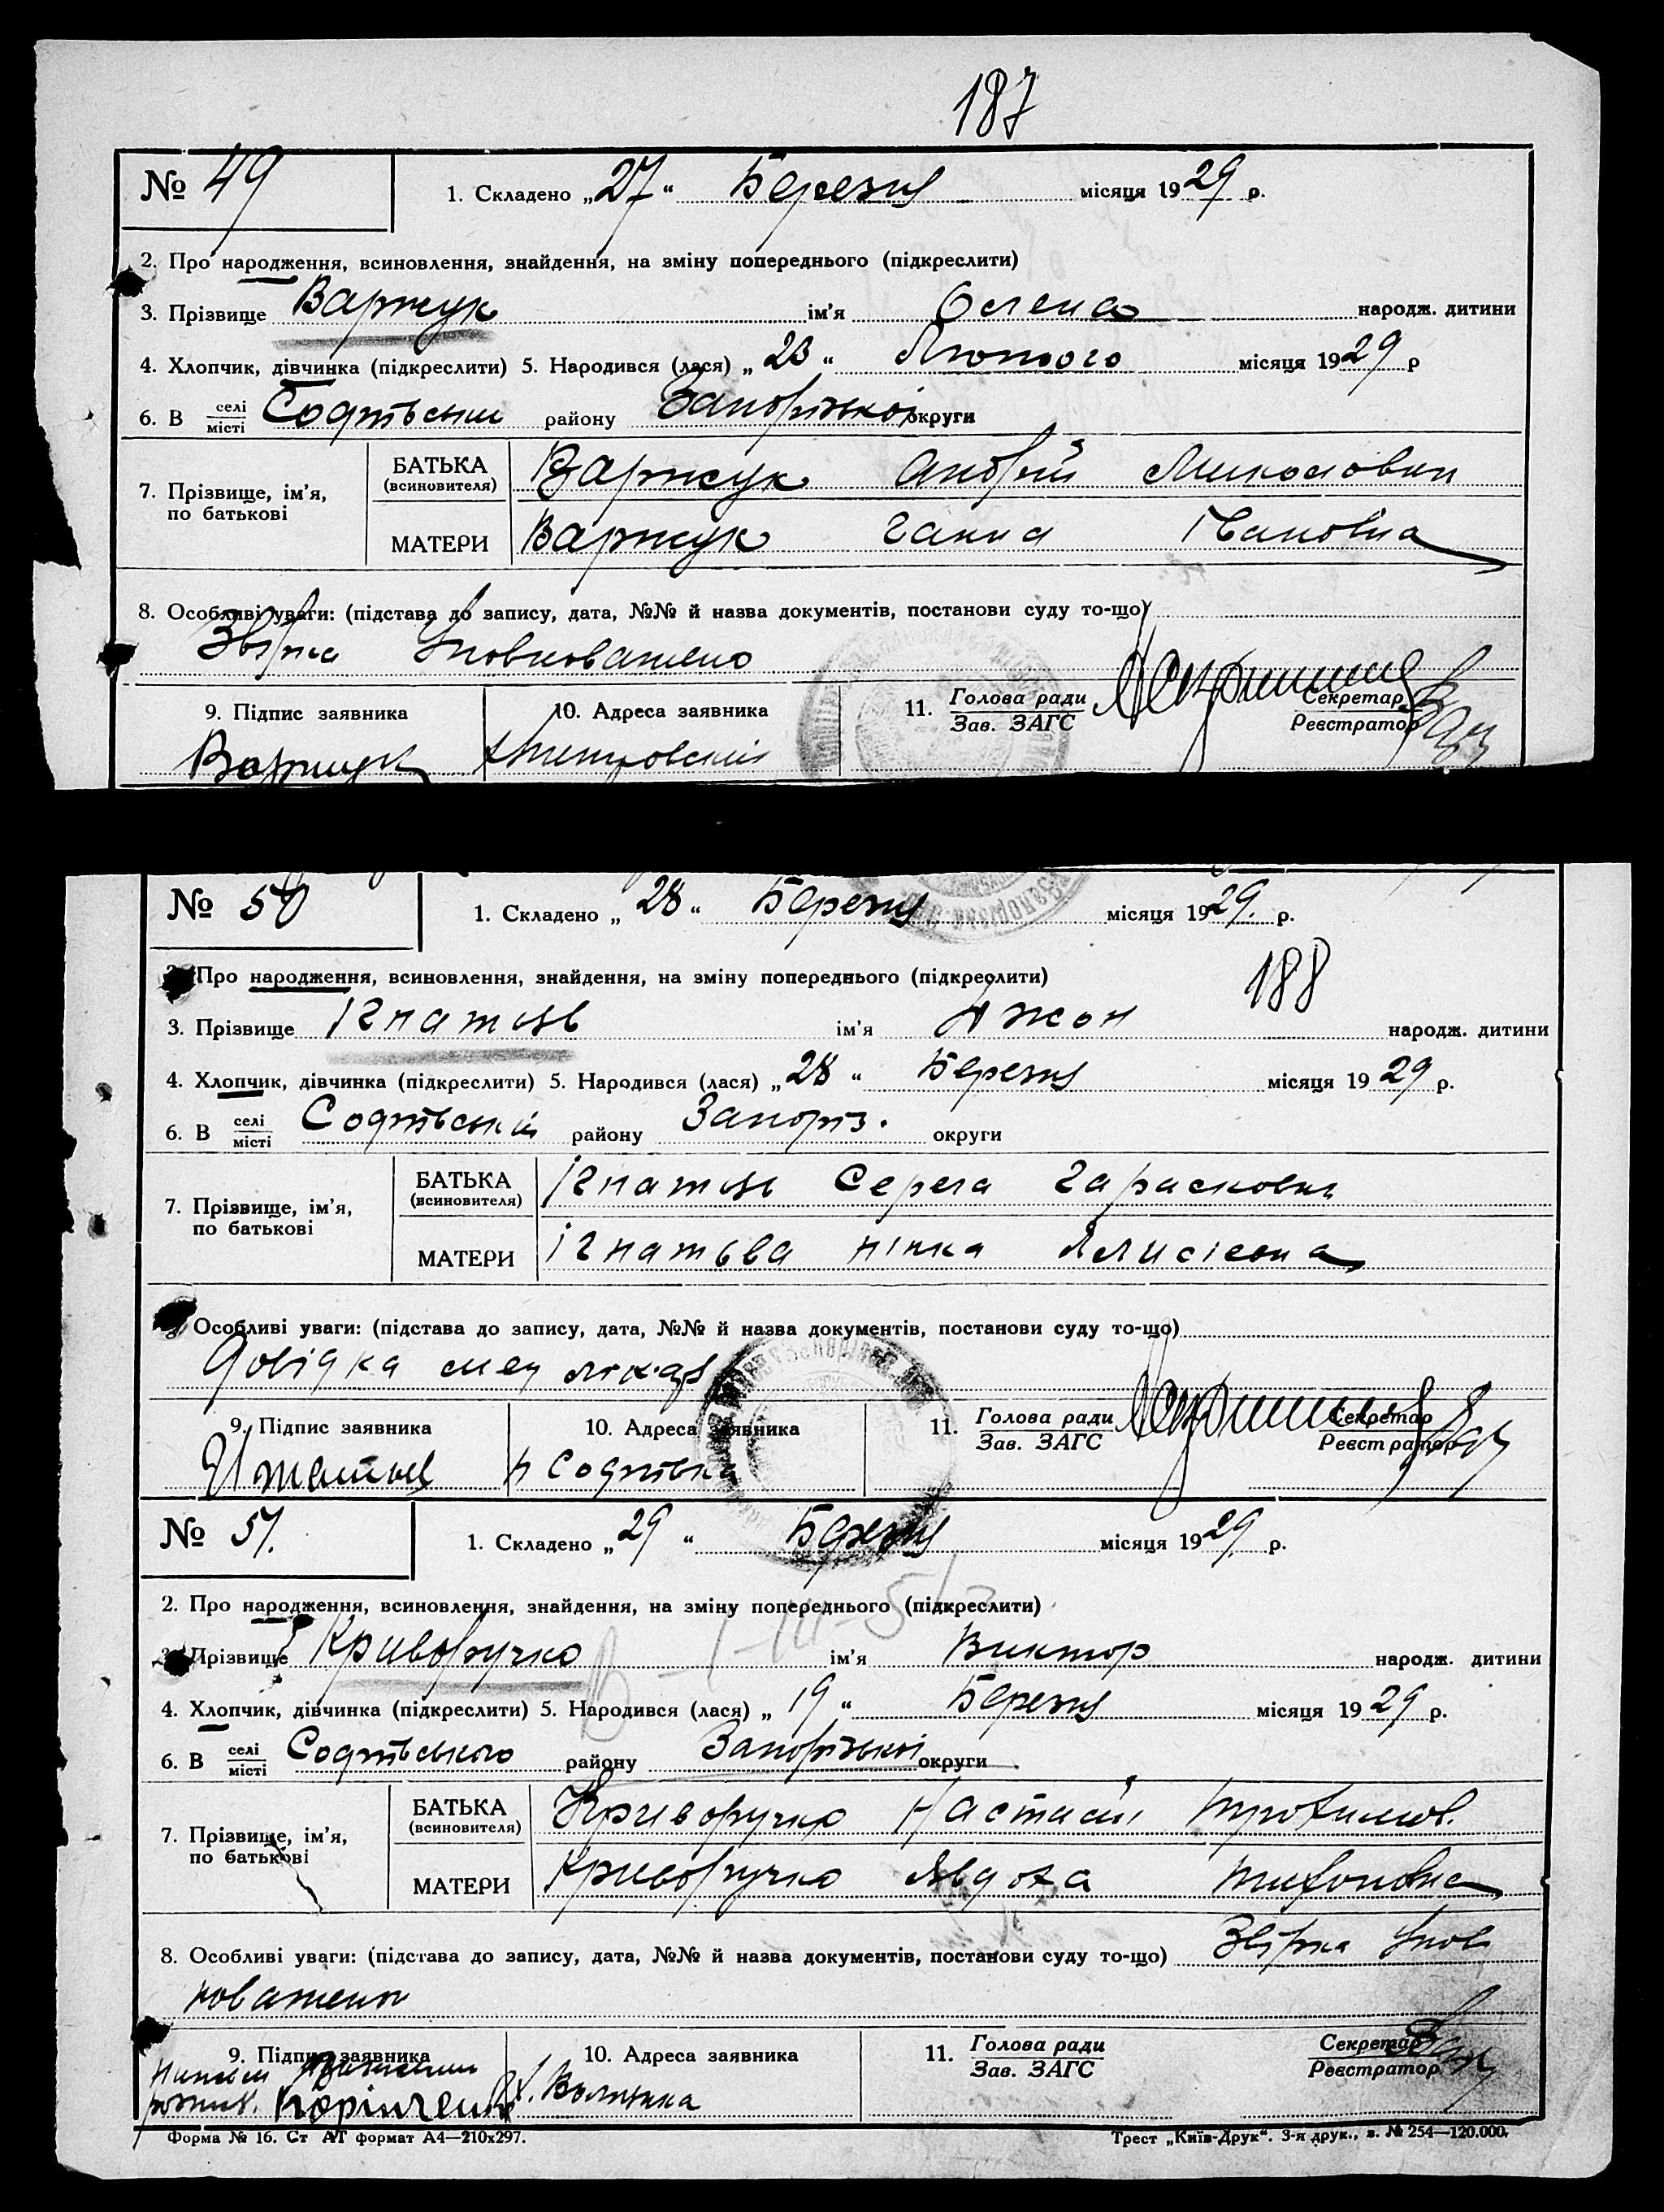 187
№ 49
1. Складено „27“ Березня місяця 1929 р.
2. Про народження, всиновлення, знайдення, на зміну попереднього (підкреслити)
3. Прізвище Варжук ім'я Олена народж. дитини
4. Хлопчик, дівчинка (підкреслити) 5. Народився (лася) „23“ Лютого місяця 1929 р
6. В селі місті Софіівськім району Запорізькоі округи
7. Прізвище, ім'я, по батькові
БАТЬКА (всиновителя) Варжук Андрій Миколович
МАТЕРИ Варжук Ганна Івановна
8. Особливі уваги: (підстава до запису, дата, №№ й назва документів, постанови суду то-що)
Звірка уповноважено
9. Підпис заявника 10. Адреса заявника 11. Голова ради Зав. ЗАГС Секретар Реєстратор
Варжук
№ 50
1. Складено „28“ Березня місяця 1929. р.
Про народження, всиновлення, знайдення, на зміну попереднього (підкреслити)
188
3. Прізвище Ігнатьєв ім'я Джон народж. дитини
4. Хлопчик, дівчинка (підкреслити) 5. Народився (лася) „28“ Березня місяця 1929 р.
6. В селі місті Софіівській району Запоріз. округи
7. Прізвище, ім'я, по батькові
БАТЬКА (всиновителя) Ігнатьєв Серега
МАТЕРИ Ігнатьва Нінка
Особливі уваги: (підстава до запису, дата, №№ й назва документів, постанови суду то-що)
Довідка лікаря
9. Підпис заявника 10. Адреса заявника 11. Голова ради Зав. ЗАГС Секретар Реєстратор
Игнатьев Софіівка
№ 51.
1. Складено „29“ Березня місяця 1929. р.
2. Про народження, всиновлення, знайдення, на зміну попереднього (підкреслити)
Прізвище Криворучко ім'я Виктор народж. дитини
4. Хлопчик, дівчинка (підкреслити) 5. Народився (лася) „19“ Березня місяця 1929 р.
6. В селі місті Софіівського району Запорізькоі округи
7. Прізвище, ім'я, по батькові
БАТЬКА (всиновителя) Криворучко Трохимов.
МАТЕРИ Криворучко Явдоха Тихоновна
8. Особливі уваги: (підстава до запису, дата, №№ й назва документів, постанови суду то-що) Звірка упов
новажено
9. Підпис заявника 10. Адреса заявника 11. Голова ради Зав. ЗАГС Секретар Реєстратор
Форма № 16. Ст АТ формат А4—210х297.
Трест „Київ-Друк“. 3-я друк., з. № 254—120.000.